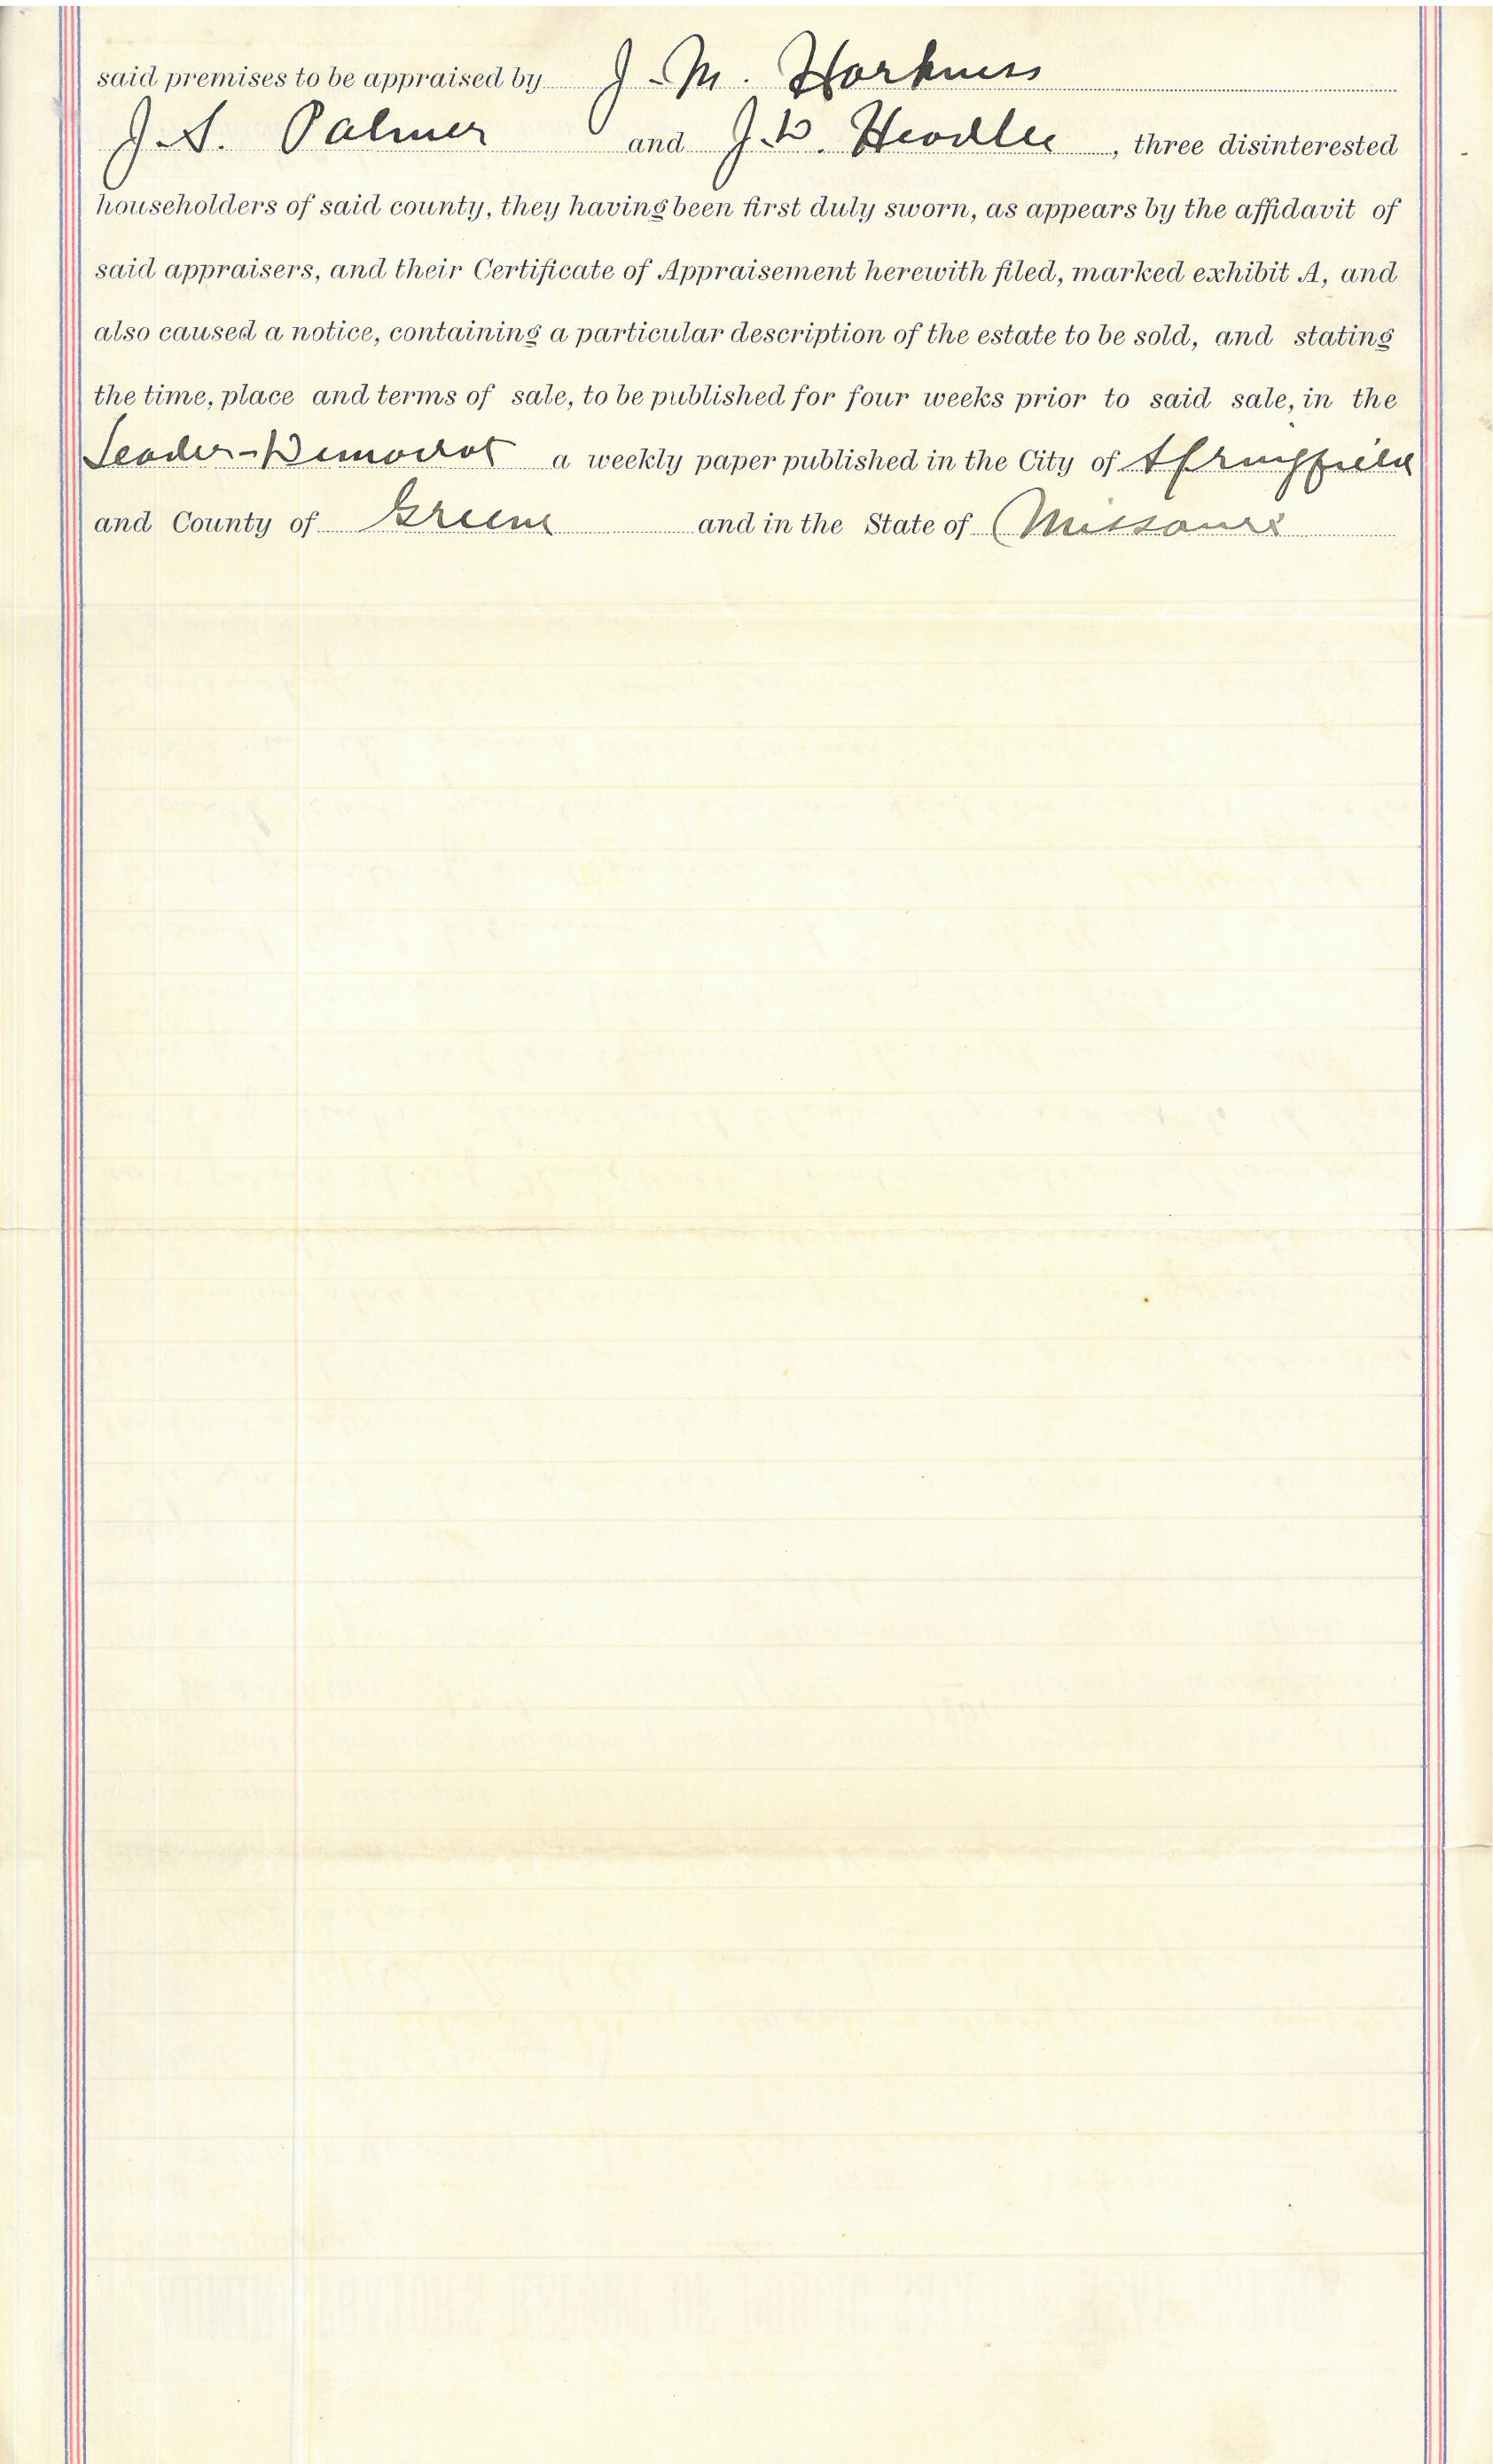 said premises to be appraised by J. M. Harkness
J. S. Palmer and J. D. Headlee, three disinterested
householders of said county, they having been first duly sworn, as appears by the affidavit of
said appraisers, and their Certificate of Appraisement herewith filed, marked exhibit A, and
also caused a notice, containing a particular description of the estate to be sold, and stating
the time, place and terms of sale, to be published for four weeks prior to said sale, in the
Leader-Democrat a weekly paper published in the City of Springfield
and County of Greene and in the State of Missouri